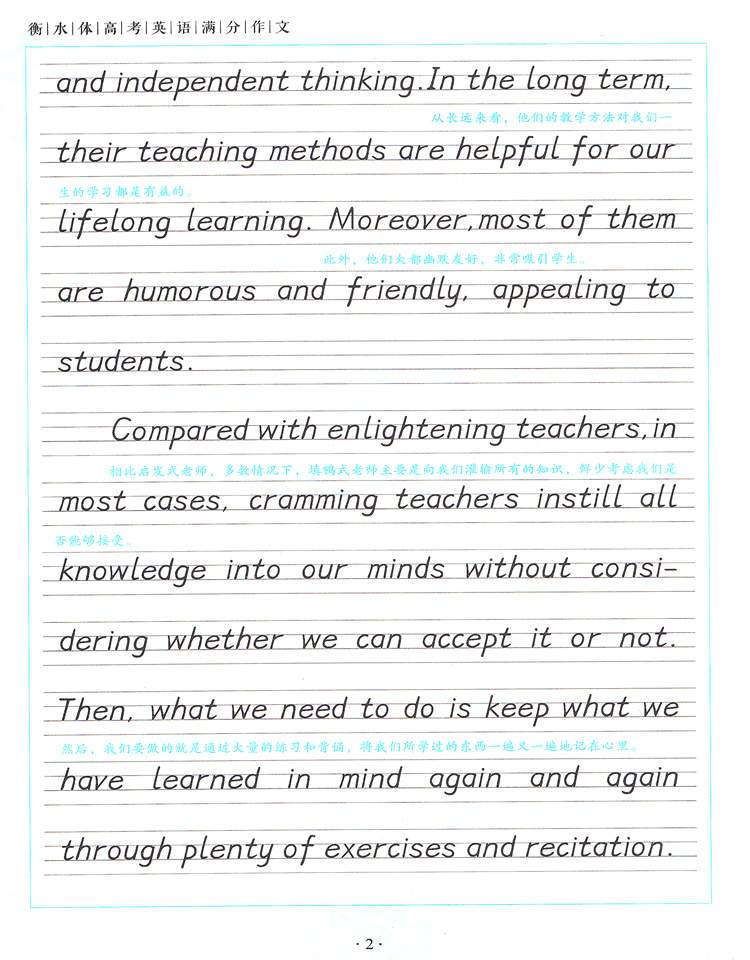 衡|水|体|高|考|英|语|满|分|作|文
and independent thinking.In the long term,
从长远来看，他们的教学方法对我们一
their teaching methods are helpful for our
生的学习都是有益的。
lifelong learning. Moreover,most of them
此外，他们大都幽默友好，非常吸引学生。
are humorous and friendly, appealing to
students.
Compared with enlightening teachers,in
相比启发式老师，多数情况下，填鸭式老师主要是向我们灌输所有的知识，鲜少考虑我们是
most cases, cramming teachers instill all
否能够接受。
knowledge into our minds without consi-
dering whether we can accept it or not.
Then, what we need to do is keep what we
然后，我们要做的就是通过大量的练习和背诵，将我们所学过的东西一遍又一遍地记在心里。
have learned in mind again and again
through plenty of exercises and recitation.
·2·